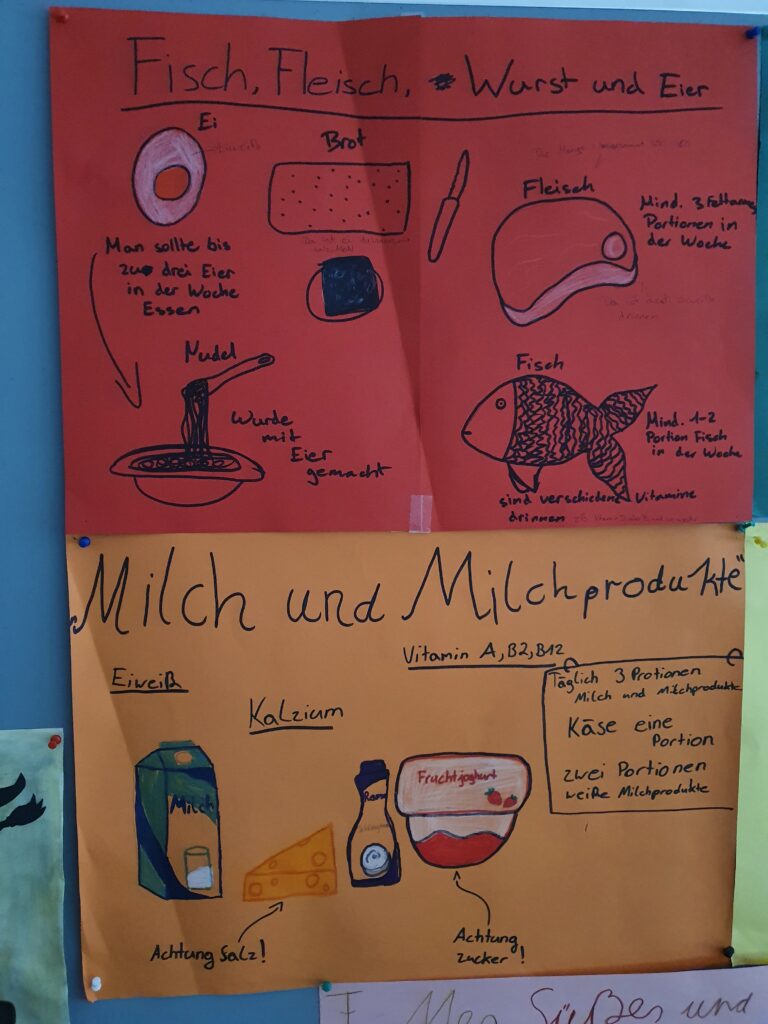 Fisch, Fleisch, Wurst und Eier
Ei
Man sollte bis
zu drei Eier
in der Woche
Essen
Brot
Fleisch
Mind. 3 Fettarme
Portionen in
der Woche
Nudel
Wurde
mit
Eier
gemacht
Fisch
Mind. 1-2
Portion Fisch
in der Woche
sind verschiedene Vitamine
drinnen
"Milch und Milchprodukte"
Eiweiß
Kalzium
Vitamin A, B2, B12
Täglich 3 Protionen
Milch und Milchprodukte
Käse eine
Portion
zwei Portionen
weiße Milchprodukte
Milch
Fruchtjoghurt
Achtung Salz!
Achtung
zucker!
Süßes und